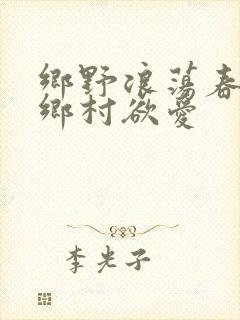 鄉野浪蕩春
鄉村欲愛
李光子